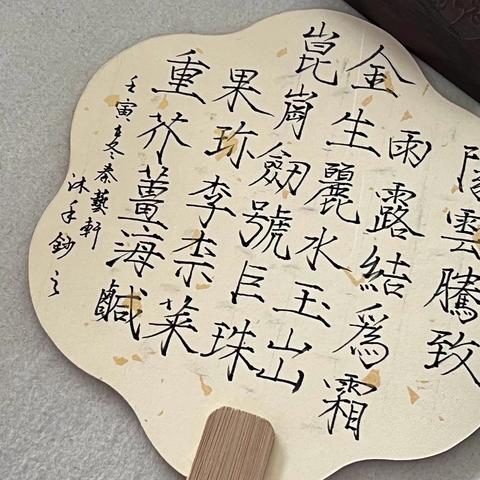 陽雲騰致
雨露結爲霜
金生麗水玉出
崑崗劒號巨珠
果珍李柰菜
重芥薑海鹹
壬寅冬秦藝軒
沐手鈔之